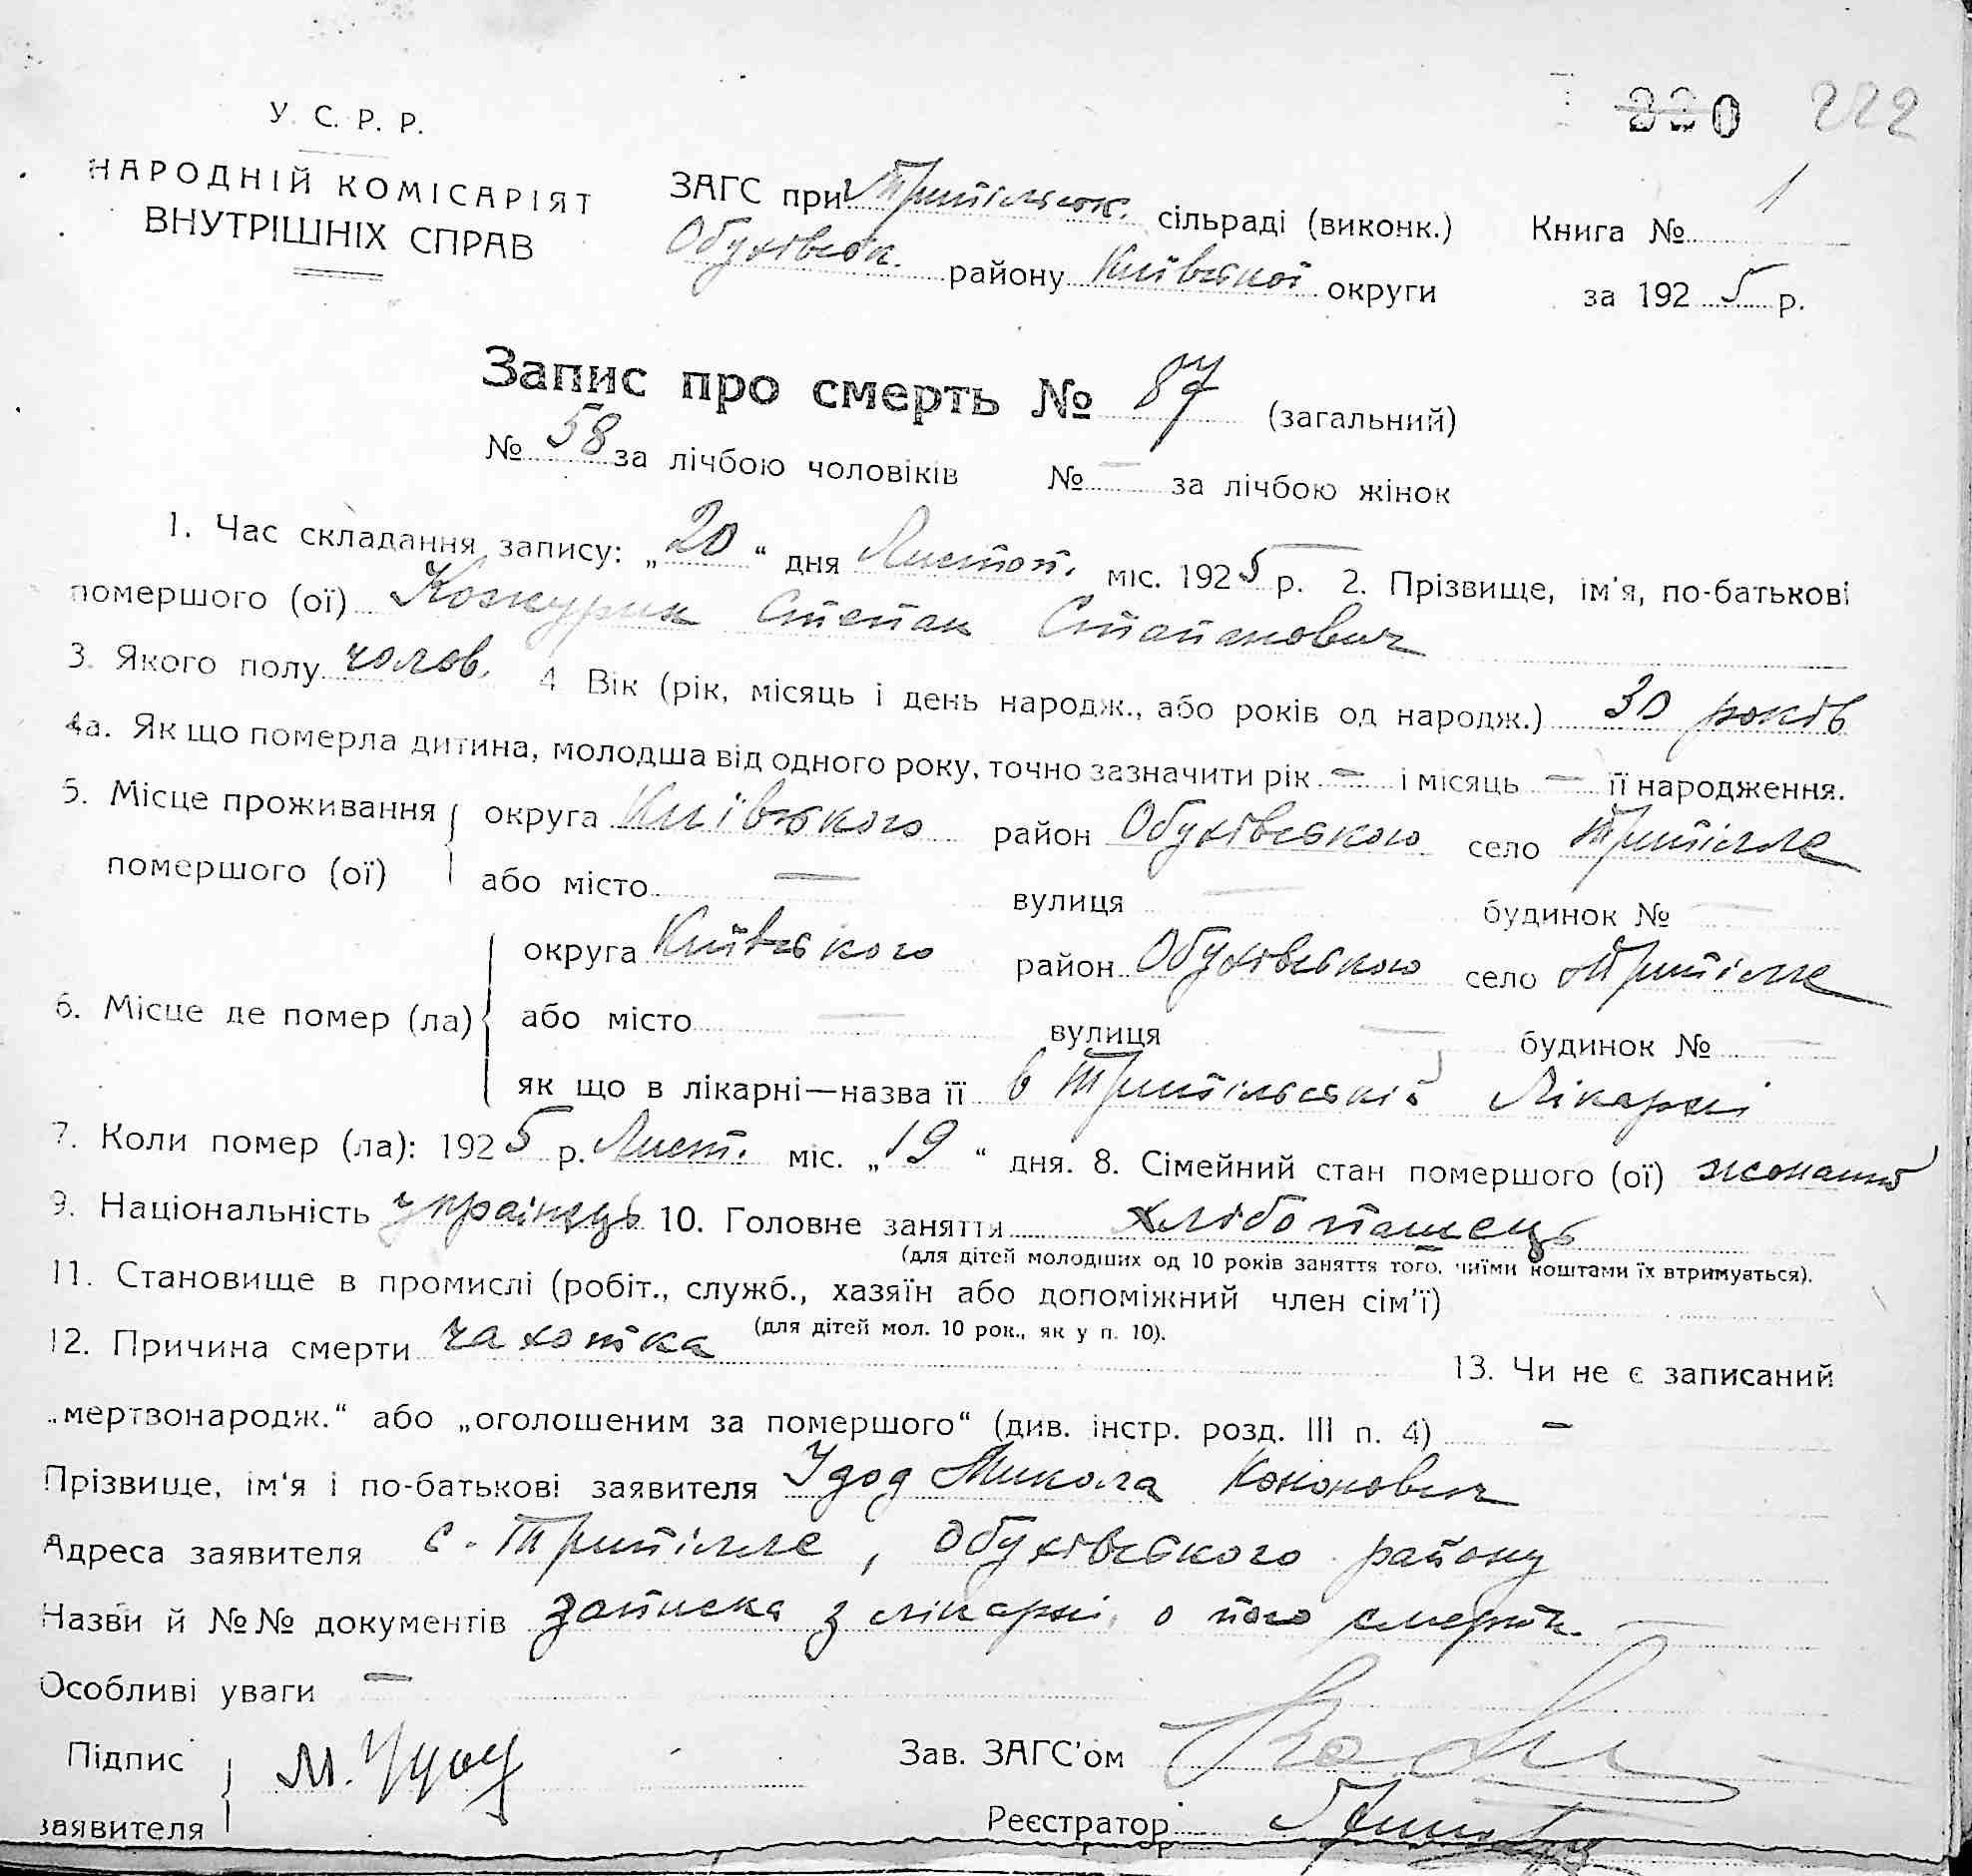 220 222
У. С. Р. Р.
НАРОДНІЙ КОМІСАРІЯТ
ВНУТРІШНІХ СПРАВ
ЗАГС при Трипільськ. сільраді (виконк.) Книга № 1
Обухівськ. району Київської округи за 192 5 р.
Запис про смерть № 87 (загальний)
№ 58 за лічбою чоловіків № — за лічбою жінок
1. Час складання запису: „20“ дня Листоп. міс. 1925 р. 2. Прізвище, ім'я, по-батькові
помершого (ої) Степан Степанович
3. Якого полу чолов. 4 Вік (рік, місяць і день народж., або років од народж.) 30 років
4а. Як що померла дитина, молодша від одного року, точно зазначити рік — і місяць — її народження.
5. Місце проживання округа Київського район Обухівського село Трипілле
помершого (ої) або місто — вулиця — будинок № —
округа Київського район Обухівського село Трипілле
6. Місце де помер (ла) або місто — вулиця — будинок № —
як що в лікарні—назва її в Трипільській Лікарні
7. Коли помер (ла): 1925 р. Лист. міс. „19“ дня. 8. Сімейний стан помершого (ої) жонатий
9. Національність українець 10. Головне заняття хлібопашець
(для дітей молодших од 10 років заняття того, чиїми коштами їх втримується).
11. Становище в промислі (робіт., служб., хазяїн або допоміжний член сім'ї)
(для дітей мол. 10 рок., як у п. 10).
12. Причина смерти чахотка 13. Чи не є записаний
„мертвонародж.“ або „оголошеним за помершого“ (див. інстр. розд. III п. 4) —
Прізвище, ім'я і по-батькові заявителя Удод Микола Кононович
Адреса заявителя с. Трипілле, Обухівського району
Назви й №№ документів записка з лікарні, о його смерти.
Особливі уваги —
Підпис М. Удод Зав. ЗАГС'ом
заявителя Реєстратор